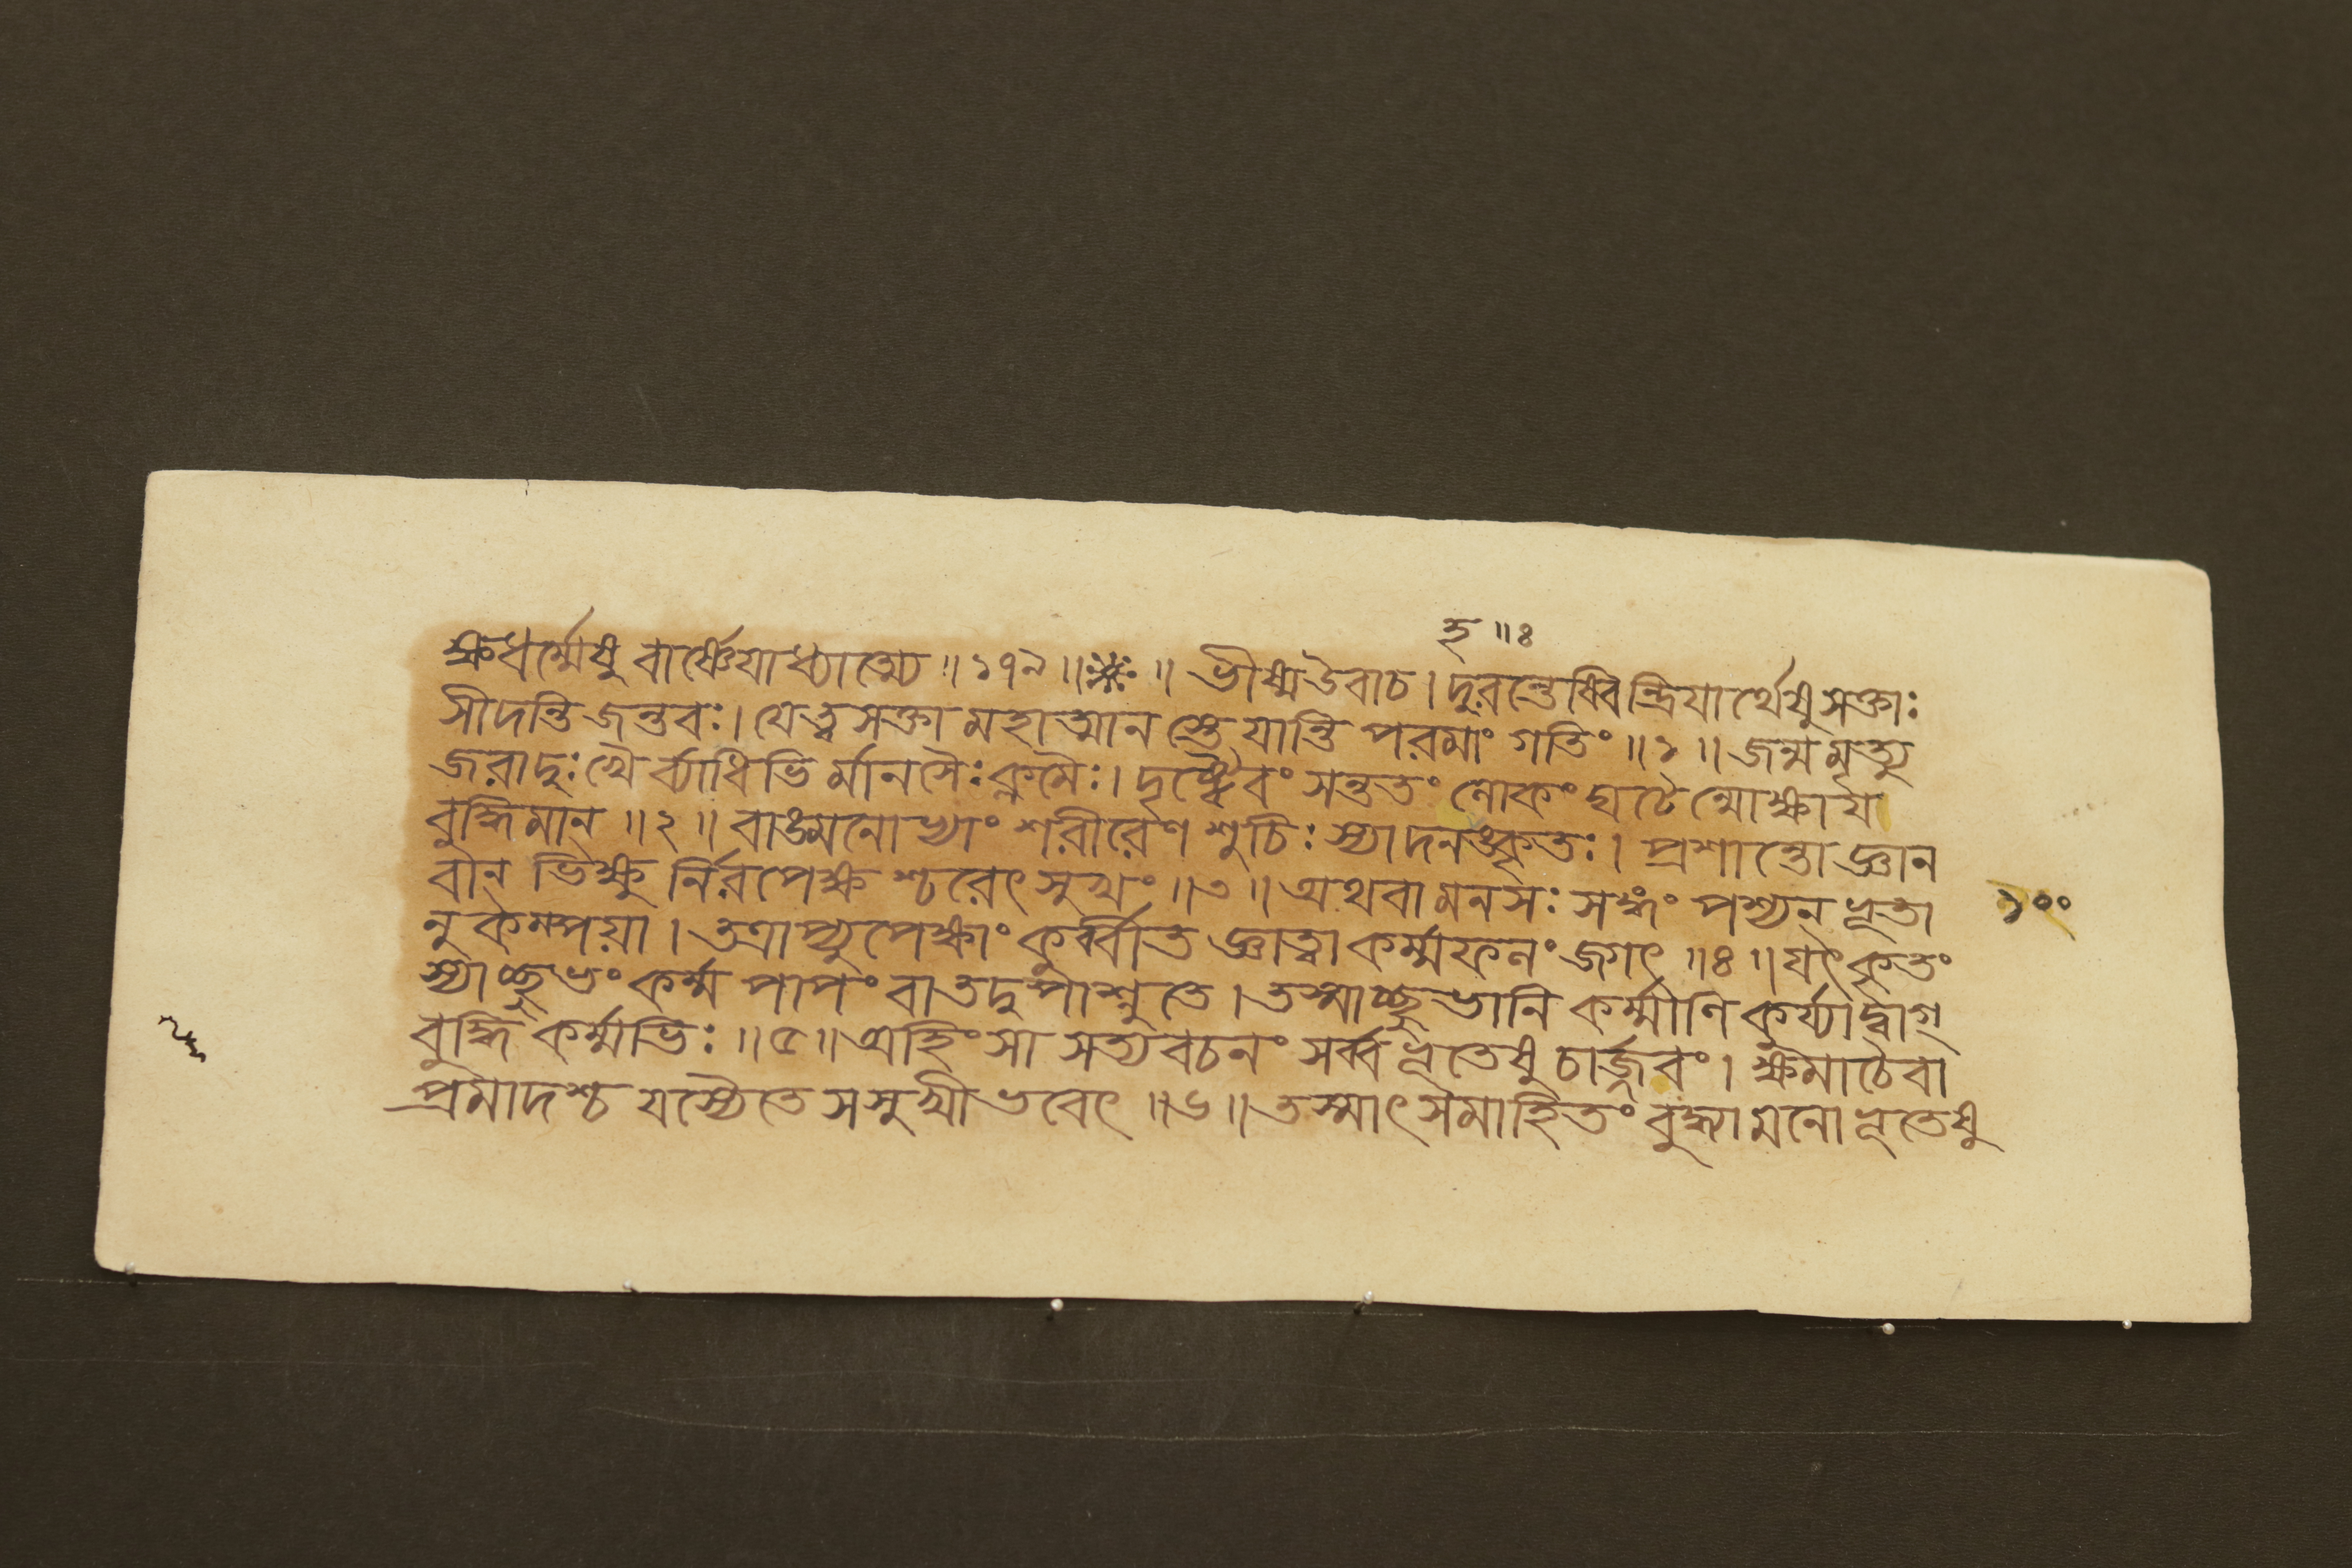 হ॥ঃ
ক্ষধর্ম্মেষু বার্ষ্ণেয়াধ্যাত্ম্যে॥১৭৯॥※॥ভীষ্মউবাচ।দুরন্তেষ্বিন্দ্রিযার্থেষুসক্তাঃ
সীদন্তি জন্তবঃ।যেত্বসক্তা মহাত্মান স্তে যান্তি পরমাং গতিং॥১॥জন্মমৃত্যু
জরাদুঃখৈ র্ব্যাধিভি র্মানসৈঃক্লমৈঃ।দৃষ্ট্বৈবং সন্ততং লোকং ঘটেন্মোক্ষায
বুদ্ধিমান্॥২॥বাঙ্মনোভ্যাং শরীরেণ শুচিঃ স্যাদনহঙ্কৃতঃ।প্রশান্তো জ্ঞান
বান্ ভিক্ষু র্নিরপেক্ষ শ্চরেৎ সুখং॥৩॥অথবা মনসঃ সঙ্গং পশ্যন্ ভূতা ১০০
নুকম্পয়া।তত্রাপ্যুপেক্ষাং কুর্ব্বীত জ্ঞাত্বা কর্ম্মফলং জগৎ॥৪॥যৎ কৃতং
স্যাচ্ছুভং কর্ম্ম পাপং বা তদুপাশ্নুতে।তস্মাচ্ছুভানি কর্ম্মাণি কুর্য্যাদ্বাগ্
বুদ্ধি কর্ম্মভিঃ॥৫॥অহিংসা সত্যবচনং সর্ব্বভূতেষু চার্জ্জবং।ক্ষমাচৈবা
প্রমাদশ্চ যস্যৈতে সসুখী ভবেৎ॥৬॥তস্মাৎ সমাহিতং বুদ্ধ্যা মনোভূতেষু